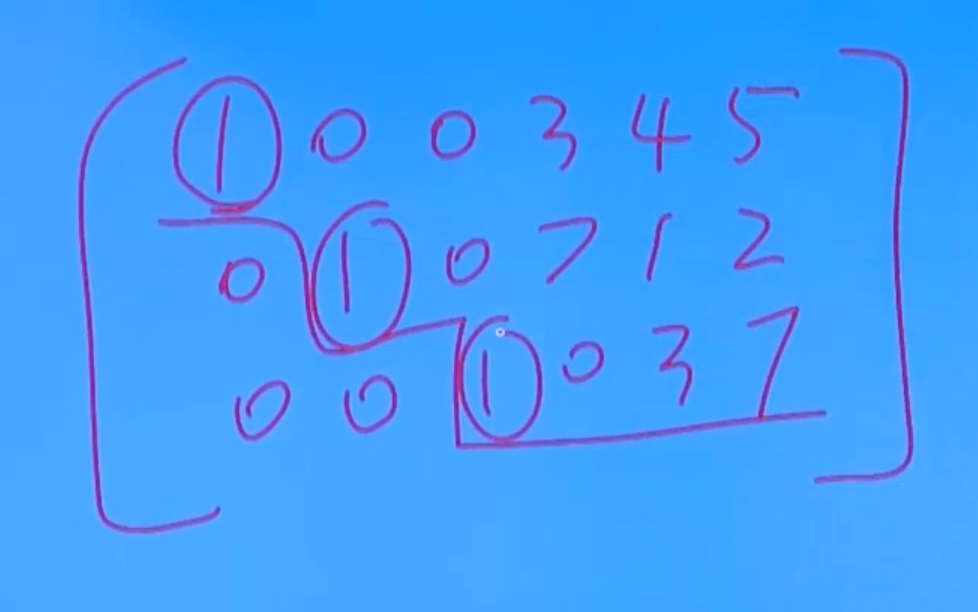 1 0 0 3 4 5
0 1 0 7 1 2
0 0 1 0 3 7